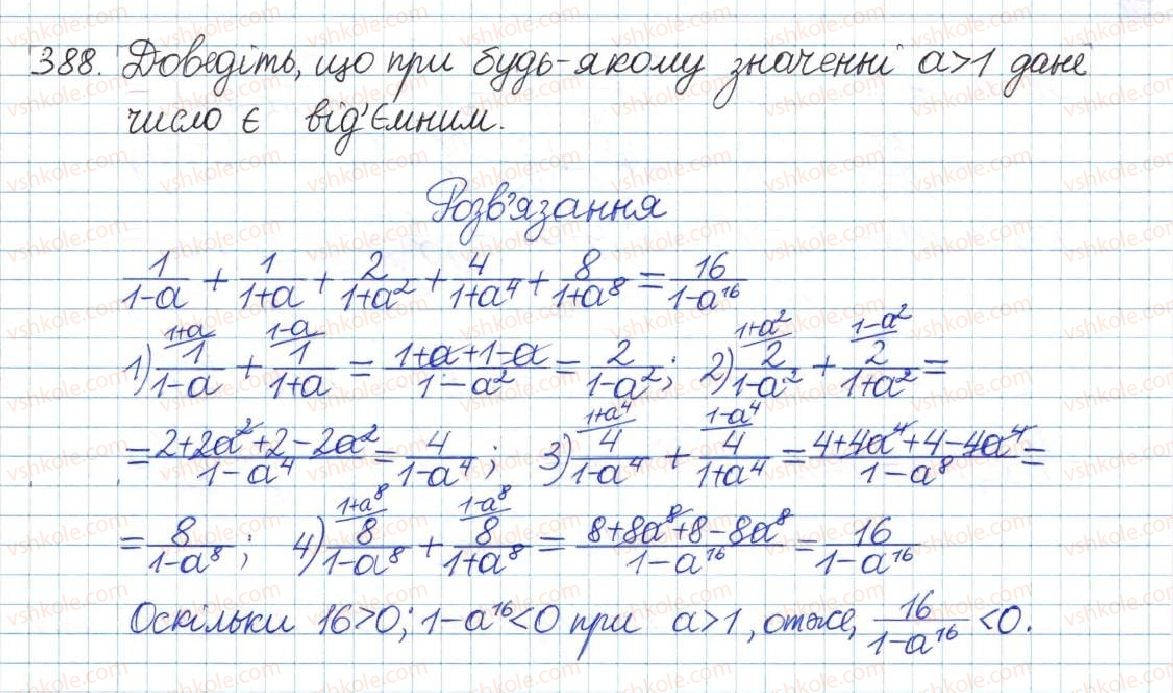 388. Доведіть, що при будь-якому значенні a>1 дане
число є від'ємним.
Розв'язання
1/(1-a) + 1/(1+a) + 2/(1+a²) + 4/(1+a⁴) + 8/(1+a⁸) = 16/(1-a¹⁶)
1) ^(1+a) 1/(1-a) + ^(1-a) 1/(1+a) = (1+a+1-a)/(1-a²) = 2/(1-a²); 2) ^(1+a²) 2/(1-a²) + ^(1-a²) 2/(1+a²) =
= (2+2a²+2-2a²)/(1-a⁴) = 4/(1-a⁴); 3) ^(1+a⁴) 4/(1-a⁴) + ^(1-a⁴) 4/(1+a⁴) = (4+4a⁴+4-4a⁴)/(1-a⁸) =
= 8/(1-a⁸); 4) ^(1+a⁸) 8/(1-a⁸) + ^(1-a⁸) 8/(1+a⁸) = (8+8a⁸+8-8a⁸)/(1-a¹⁶) = 16/(1-a¹⁶)
Оскільки 16>0; 1-a¹⁶<0 при a>1, отже, 16/(1-a¹⁶) <0.
vshkole.com